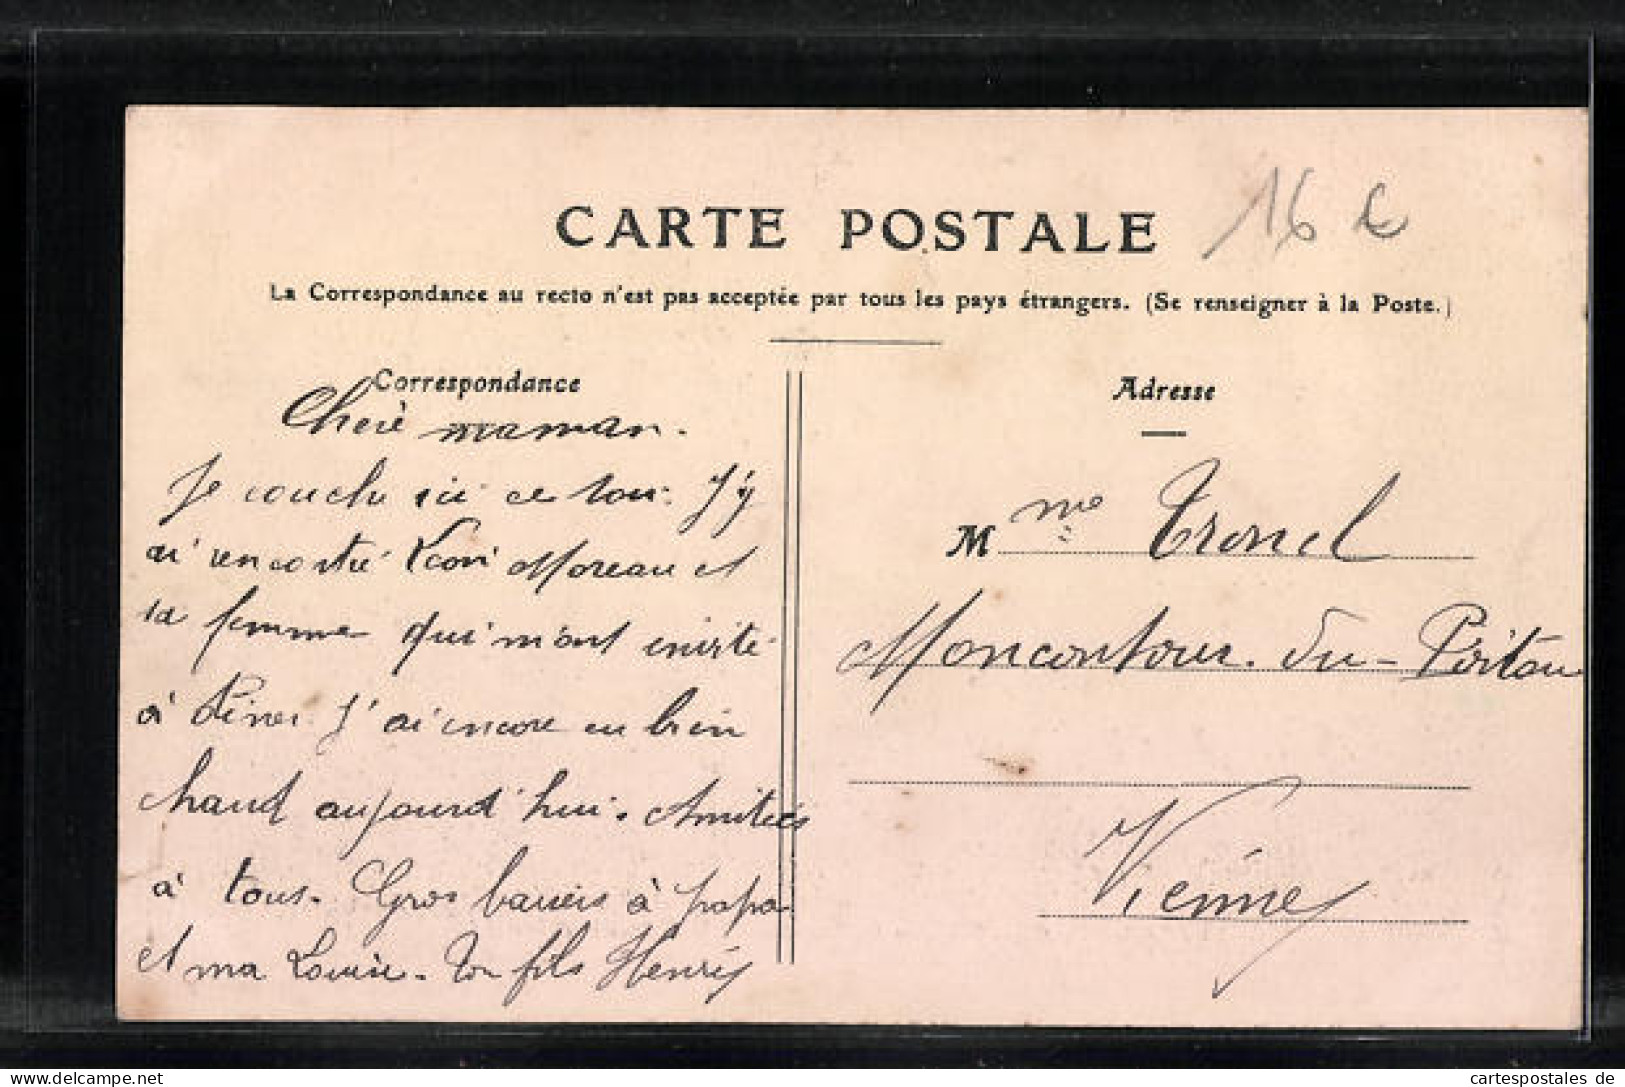 CARTE POSTALE
16 €
La Correspondance au recto n'est pas acceptée par tous les pays étrangers. (Se renseigner à la Poste.)
Correspondance
Cherè maman.
Je couche ici ce soir. J'y
ai rencontré Moreau et
sa femme qui m'ont invité
à diner. J'ai encore eu bien
chaud aujourd'hui. Amitiés
à tous. Gros baisers à papa
et ma Louise. Ton fils Henri
Adresse
M me Tronel
Moncontour-du-Poitou
Vienne
www.delcampe.net
cartespostales de